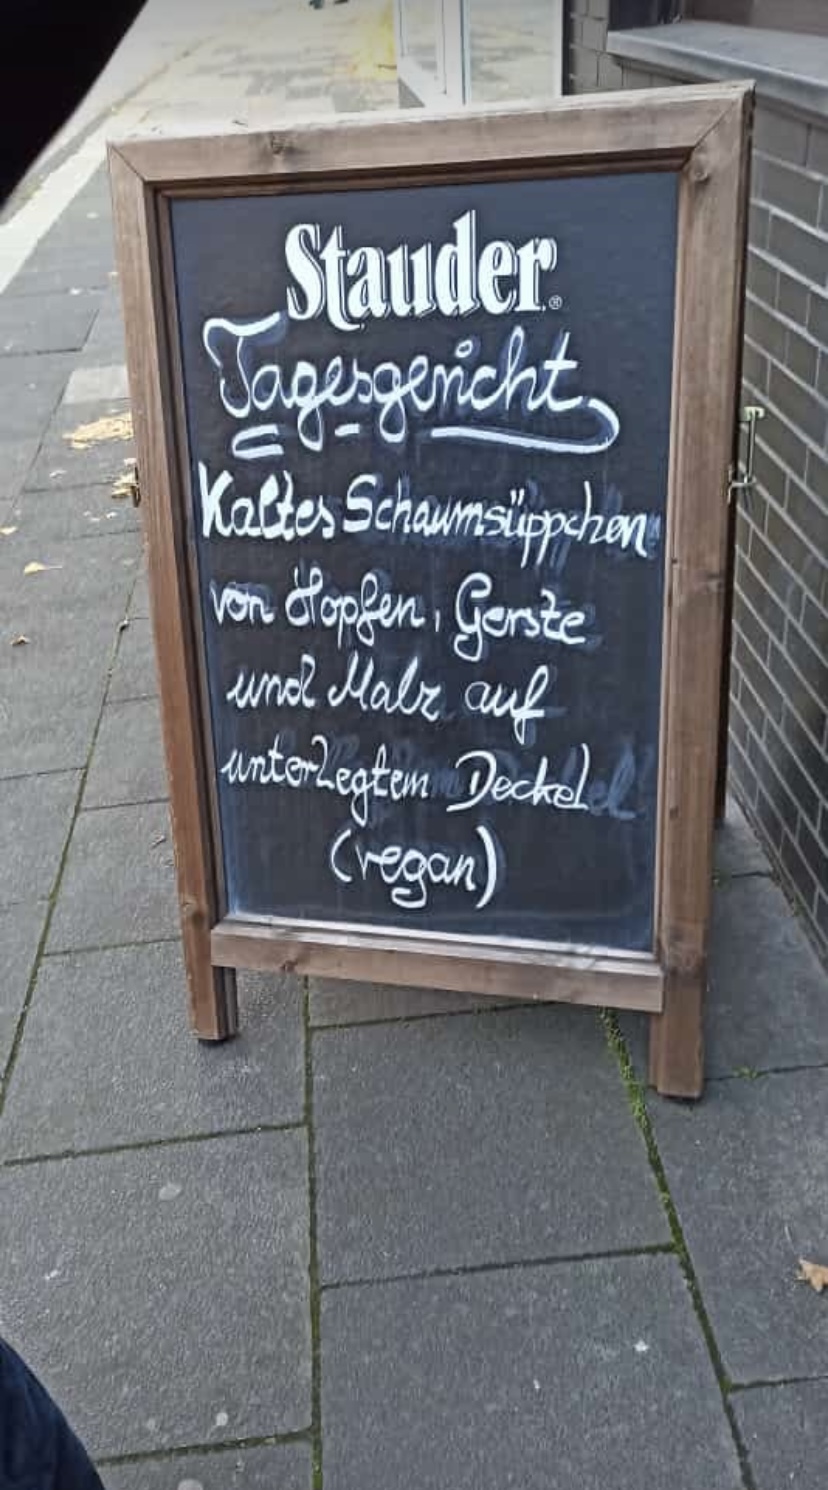 Stauder®
Tagesgericht
Kaltes Schaumsüppchen
von Hopfen, Gerste
und Malz auf
unterlegtem Deckel
(vegan)